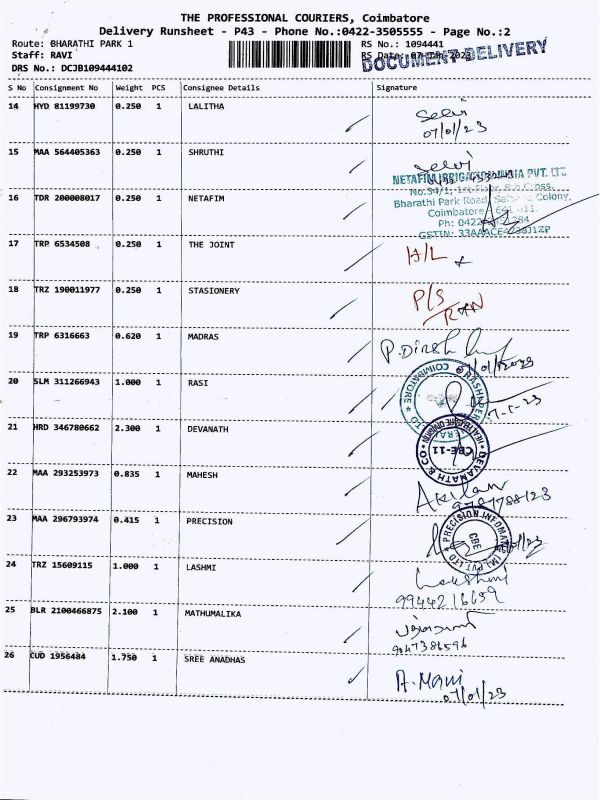 THE PROFESSIONAL COURIERS, Coimbatore
Delivery Runsheet - P43 - Phone No.:0422-3505555 - Page No.:2
Route: BHARATHI PARK 1 RS No.: 1094441
Staff: RAVI RS Date: 07-Jan-2023
DOCUMENT DELIVERY
DRS No.: DCJB109444102
S No Consignment No Weight PCS Consignee Details Signature
14 HYD 81199730 0.250 1 LALITHA Selvi
07/01/23
15 MAA 564405363 0.250 1 SHRUTHI Selvi
NETAFIM IRRIGATION INDIA PVT. LTD
No.34/1, 1st Floor, 8th Cross,
16 TDR 200008017 0.250 1 NETAFIM Bharathi Park Road, Colony,
Coimbatore
Ph: 0422
GSTIN: 33AAACE
17 TRP 6534508 0.250 1 THE JOINT H/L
18 TRZ 190011977 0.250 1 STASIONERY P/S
19 TRP 6316663 0.620 1 MADRAS P.Diresh
20 SLM 311266943 1.000 1 RASI COIMBATORE
21 HRD 346780662 2.300 1 DEVANATH DEVANATH & CO CBE-11
22 MAA 293253973 0.835 1 MAHESH Akilan
23 MAA 296793974 0.415 1 PRECISION PRECISION INFOMATIC (M) PVT LTD CBE
24 TRZ 15609115 1.000 1 LASHMI Lakshmi
9944216659
25 BLR 2100466875 2.100 1 MATHUMALIKA
9047386596
26 CUD 1956484 1.750 1 SREE ANADHAS A. Mani
07/01/23